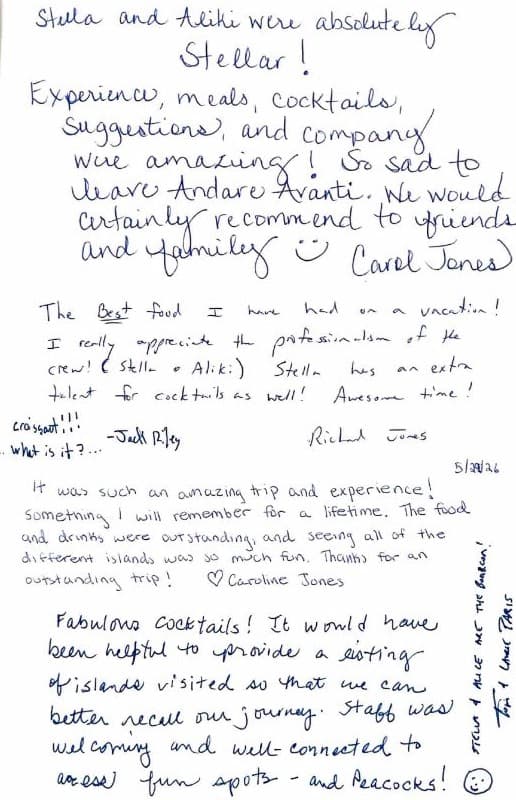 Stella and Aliki were absolutely
Stellar!
Experience, meals, cocktails,
suggestions, and company
were amazing! So sad to
leave Andare Avanti. We would
certainly recommend to friends
and family ☺ Carol Jones
The Best food I have had on a vacation!
I really appreciate the professionalism of the
crew! (Stella & Aliki) Stella has an extra
talent for cocktails as well! Awesome time!
Richard Jones
croissant!!!
what is it?... -Jack Riley
5/29/26
It was such an amazing trip and experience!
Something I will remember for a lifetime. The food
and drinks were outstanding, and seeing all of the
different islands was so much fun. Thanks for an
outstanding trip! ♡ Caroline Jones
Fabulous cocktails! It would have
been helpful to provide a listing
of islands visited so that we can
better recall our journey. Staff was
welcoming and well-connected to
access fun spots - and Peacocks! ☺
STELLA & ALICE ARE THE